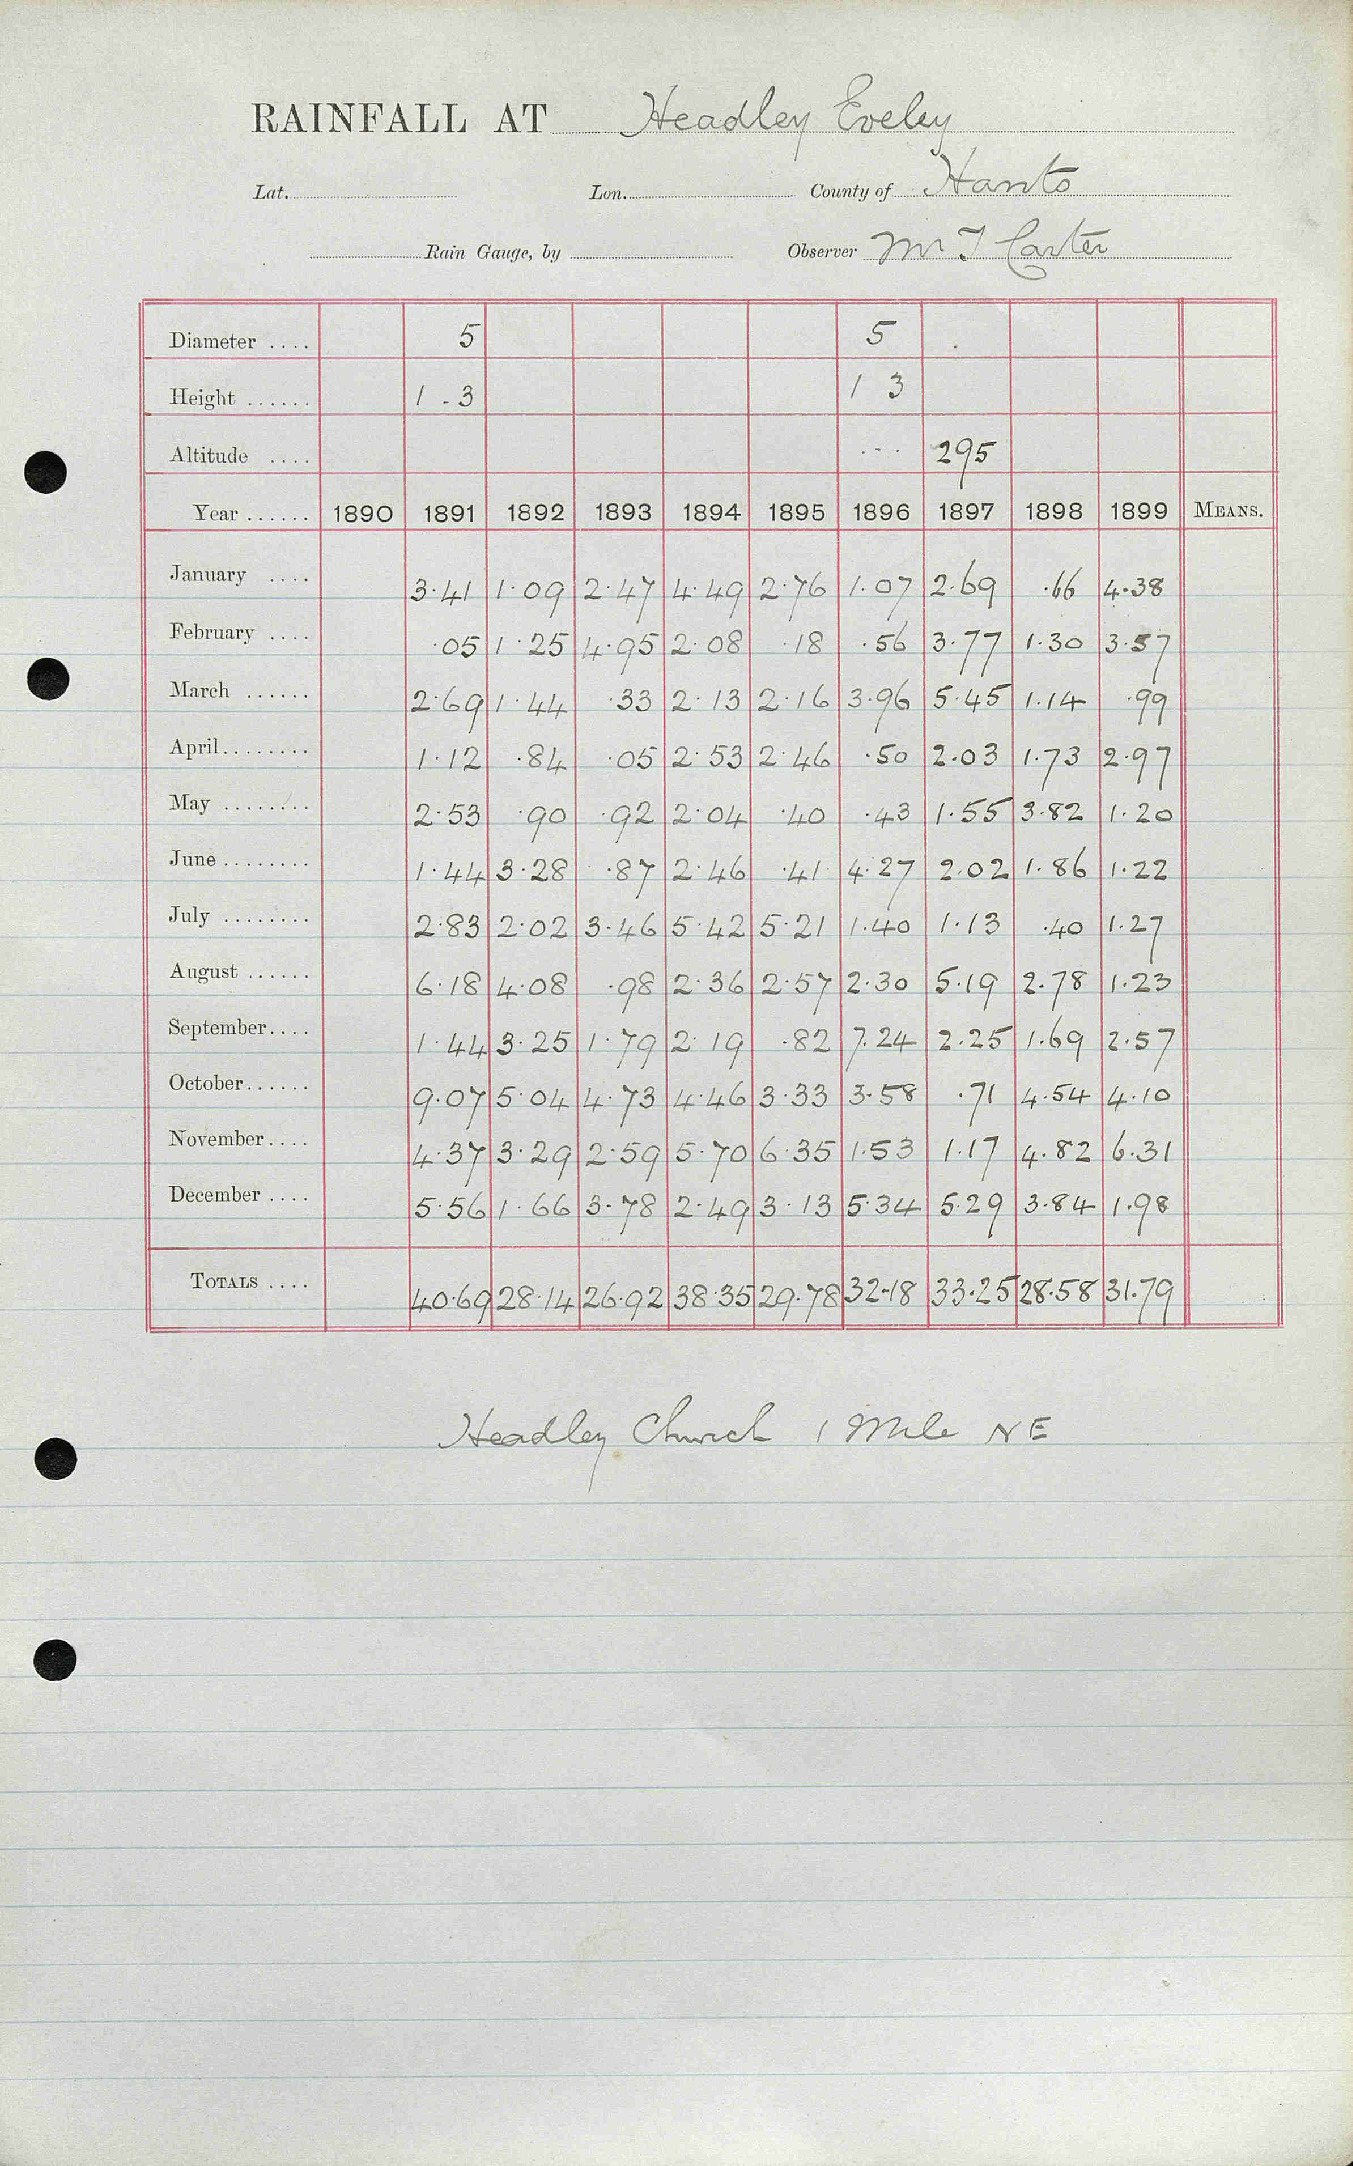 RAINFALL AT Headley Eveley
Lat. Lon. County of Hants
Rain Gauge, by Observer Mr T Carter
Diameter .... 5 5
Height ...... 1 - 3 1 3
Altitude .... ... 295
Year ...... 1890 1891 1892 1893 1894 1895 1896 1897 1898 1899 MEANS.
January .... 3·41 1·09 2·47 4·49 2·76 1·07 2·69 ·66 4·38
February .... ·05 1·25 4·95 2·08 ·18 ·56 3·77 1·30 3·57
March ...... 2·69 1·44 ·33 2·13 2·16 3·96 5·45 1·14 ·99
April........ 1·12 ·84 ·05 2·53 2·46 ·50 2·03 1·73 2·97
May ........ 2·53 ·90 ·92 2·04 ·40 ·43 1·55 3·82 1·20
June ........ 1·44 3·28 ·87 2·46 ·41 4·27 2·02 1·86 1·22
July ........ 2·83 2·02 3·46 5·42 5·21 1·40 1·13 ·40 1·27
August ...... 6·18 4·08 ·98 2·36 2·57 2·30 5·19 2·78 1·23
September.... 1·44 3·25 1·79 2·19 ·82 7·24 2·25 1·69 2·57
October...... 9·07 5·04 4·73 4·46 3·33 3·58 ·71 4·54 4·10
November.... 4·37 3·29 2·59 5·70 6·35 1·53 1·17 4·82 6·31
December .... 5·56 1·66 3·78 2·49 3·13 5·34 5·29 3·84 1·98
TOTALS .... 40·69 28·14 26·92 38·35 29·78 32·18 33·25 28·58 31·79
Headley Church 1 Mile NE